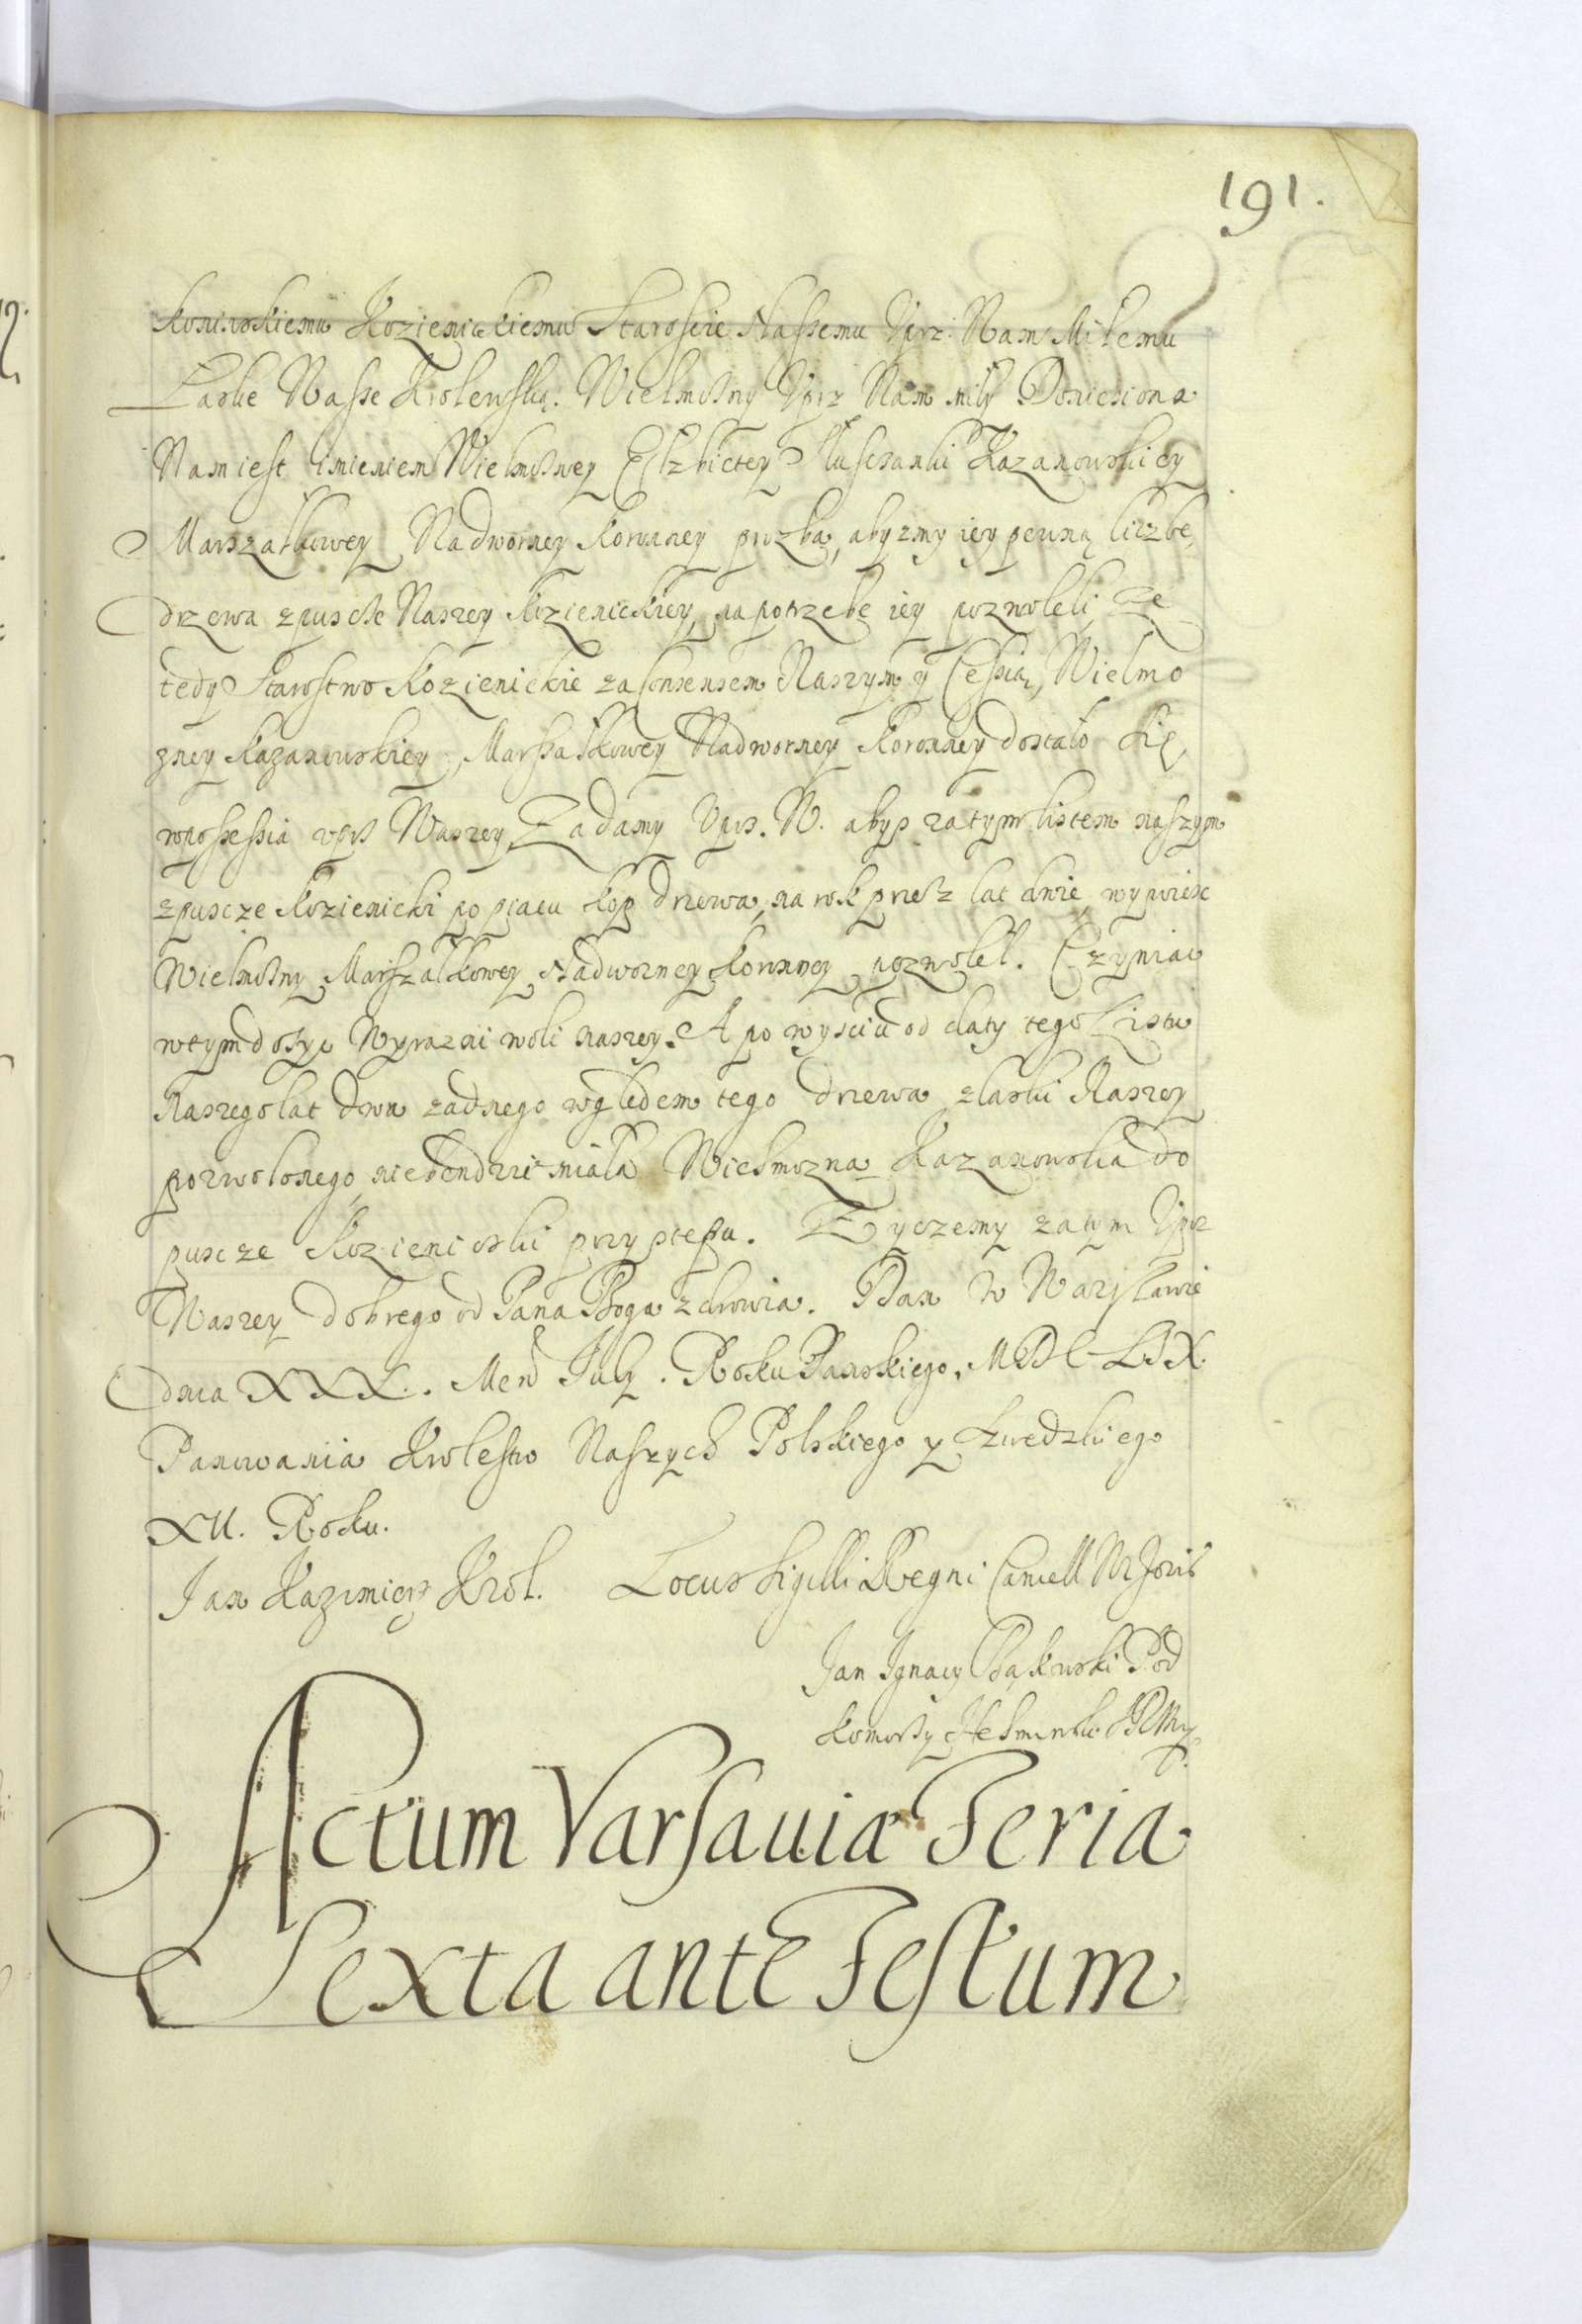 191.
koninskiemu Kozienickiemu Staroscie Naszemu Uprz: Nam Miłemu
Łaske Nasse Krolewską. Wielmożny Uprz Nam miły Doniesiona
Nam iest imieniem Wielmożney Elzbiety Słuszanki Kazanowskiey
Marszałkowey Nadworney Koronney prozba, abyzmy iey pewną liczbe,
drzewa z puscze Naszey Kozienickiey, na potrzebe iey pozwoleli, Ze
tedy Starostwo Kozienickie za Consensem Naszym y Cessią, Wielmo
zney Kazanowskiey, Marszałkowey Nadworney Koronney dostało się,
w possessia Naszey, Ządamy Uprz. W. abys za tym listem naszym
z puscze Kozienicki po kop drzewa, na rok przez lat dwie, wywiesc
Wielmożny Marszałkowey Nadworney Koronney pozwolel. Czyniac
w tym dosyc Wyrazni woli naszey. A po wysciu od daty tego Listu
Naszego lat dwu zadnego wzgledem tego drzewa z laski Naszey
pozwolonego, niebendzie miała Wielmozna Kazanowska do
puscze Kozienicski przystepu. Zyczemy zatym Uprz
Waszey dobrego od Pana Boga zdrowia. Dan w Warszawie
dnia XXX. Men July. Roku Panskiego, MDCLIX.
Panowania Krolestw Naszych Polskiego y Szwedzkiego
XII. Roku.
Jan Kazimierz Krol. Locus Sigilli Regni Cancell Mjoris
Jan Ignacy Bąkowski Pod
komorzy Chelminski
Actum Varsaviæ Feria
Sexta ante Festum